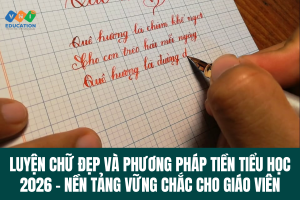 VMI
EDUCATION
Quê hương
Quê hương là chùm khế ngọt
Cho con trèo hái mỗi ngày
Quê hương là đường đ
LUYỆN CHỮ ĐẸP VÀ PHƯƠNG PHÁP TIỀN TIỂU HỌC
2026 - NỀN TẢNG VỮNG CHẮC CHO GIÁO VIÊN